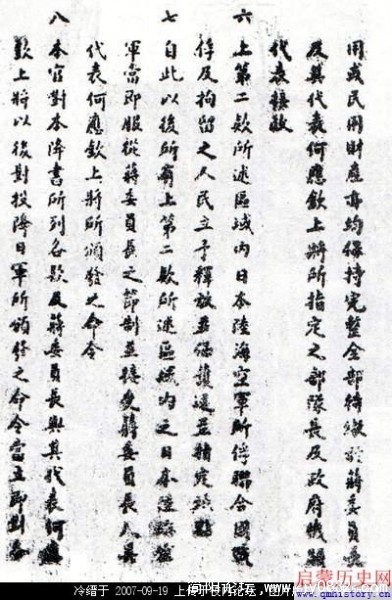 用或民用財產亦均保持完整全部待繳於蔣委員長
及其代表何應欽上將所指定之部隊長及政府機關
代表接收
六 上第二款所述區域內日本陸海空軍所俘聯合國戰
俘及拘留之人民立予釋放並保護送至指定地點
七 自此以後所有上第二款所述區域內之日本陸海空
軍當即服從蔣委員長之節制並接受蔣委員長及其
代表何應欽上將所頒發之命令
八 本官對本降書所列各款及蔣委員長與其代表何應
欽上將以後對投降日軍所頒發之命令當立即對各
启蒙历史网
www.qmhistory.cn
冷缙于 2007-09-19 上传